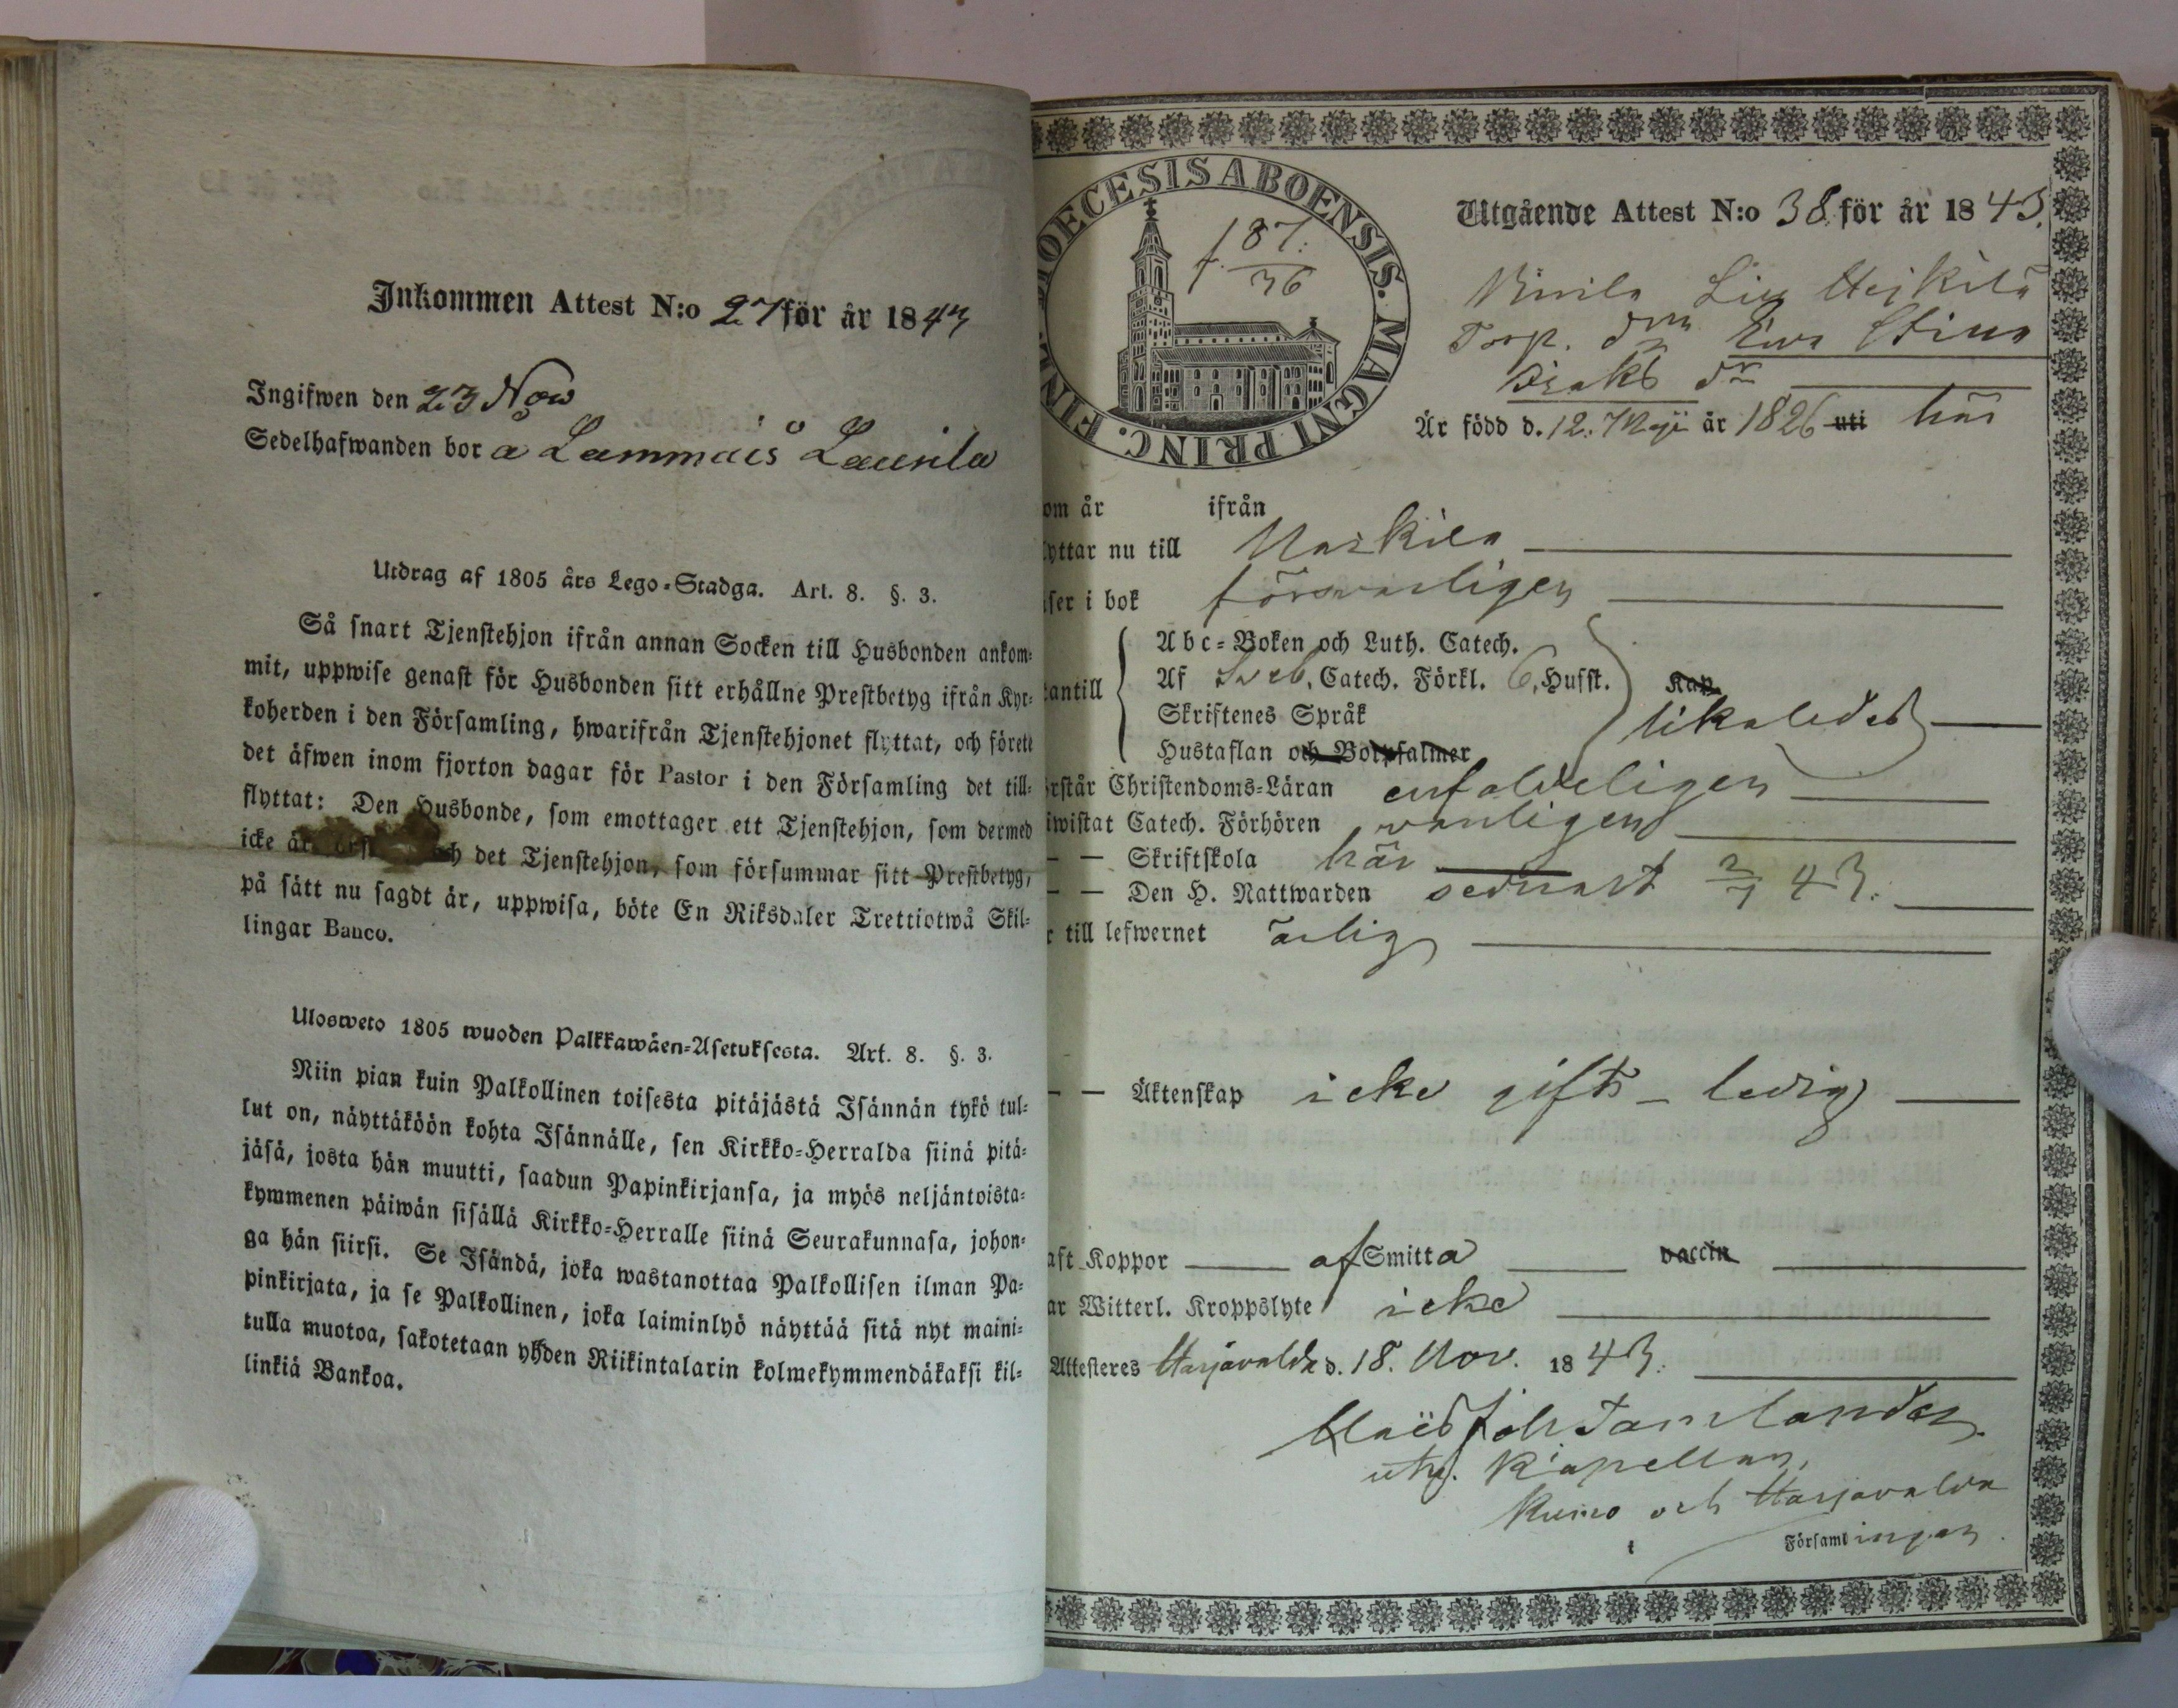 Inkommen Attest N:o 27 för år 1843
Ingifwen den 23 Nov
Sedelhafwanden bor å Lammais Laurila
Utdrag af 1805 års Lego-Stadga. Art. 8. §. 3.
Så snart Tjenstehjon ifrån annan Socken till Husbonden ankom-
mit, uppwise genast för Husbonden sitt erhållne Prestbetyg ifrån Kyr-
koherden i den Församling, hwarifrån Tjenstehjonet flyttat, och förete
det äfwen inom fjorton dagar för Pastor i den Församling det till-
flyttat: Den Husbonde, som emottager ett Tjenstehjon, som dermed
icke är och det Tjenstehjon, som försummar sitt Prestbetyg,
på sätt nu sagdt är, uppwisa, böte En Riksdaler Trettiotwå Skil-
lingar Banco.
Ulosweto 1805 wuoden Palkkawäen-Asetuksesta. Art. 8. §. 3.
Niin pian kuin Palkollinen toisesta pitäjästä Isännän tykö tul-
lut on, näyttäköön kohta Isännälle, sen Kirkko-Herralda siinä pitä-
jäsä, josta hän muutti, saadun Papinkirjansa, ja myös neljäntoista-
kymmenen päiwän sisällä Kirkko-Herralle siinä Seurakunnasa, johon-
ga hän siirsi. Se Isändä, joka wastanottaa Palkollisen ilman Pa-
pinkirjata, ja se Palkollinen, joka laiminlyö näyttää sitä nyt maini-
tulla muotoa, sakotetaan yhden Riikintalarin kolmekymmendäkaksi kil-
linkiä Bankoa.
DIOECESIS ABOENSIS. MAGNI PRINC. FINL.
f. 87:
36
Utgående Attest N:o 38 för år 1843.
Heikilä
Torp. Eva Stina
Isaks dr
Är född d. 12. Maji år 1826 uti här
om år ifrån
yttar nu till Nakkila
ser i bok försvarligen
Abc-Boken och Luth. Catech.
antill Af Sveb. Catech. Förkl. 6, Husst. Kap.
Skriftenes Språk likaledes
Hustaflan och Botpsalmer
rstår Christendoms-Läran enfaldeligen
iwistat Catech. Förhören vanligen
— — Skriftskola här
— — Den H. Nattwarden sednast 2/7 43.
r till lefwernet ärlig
— — Äktenskap icke gift – ledig
aft Koppor af Smitta vaccin
ar Witterl. Kroppslyte icke
Attesteres Harjavalda d. 18. Nov. 1843.
Kapellan,
Kumo och Harjavalda
i Församlingar.